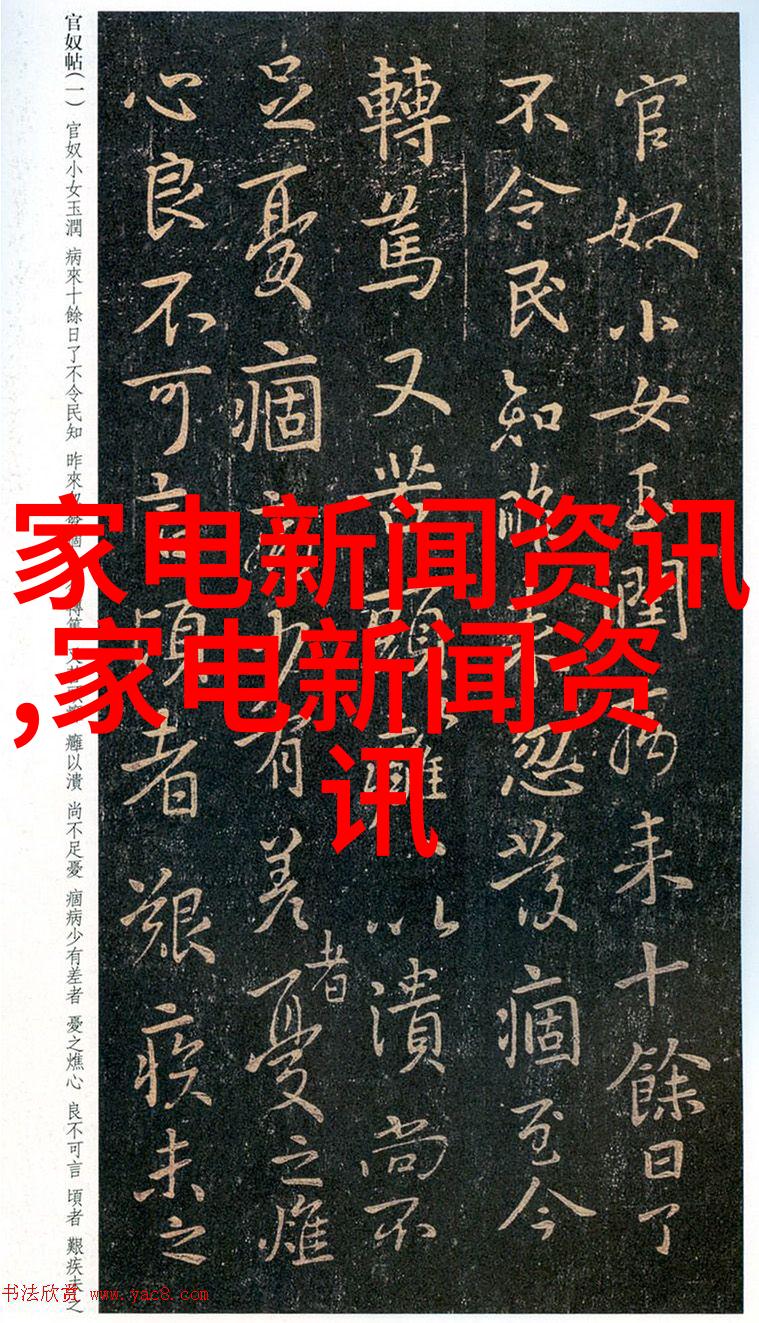 官奴帖(一) 官奴小女玉潤 病來十餘日了不令民知 昨來
癰以潰 尚不足憂 痼病少有差者 憂之燋心 良不可言 頃者 艱疾未之
官奴小女玉潤病來十餘日了
不令民知昨來忽發痼至今
轉篤又苦頭癰以潰尚不
足憂痼病少有差者憂之燋
心良不可言頃者艱疾未之
家电新闻资讯
,家电新闻资
讯
书法欣赏 www.yac8.com